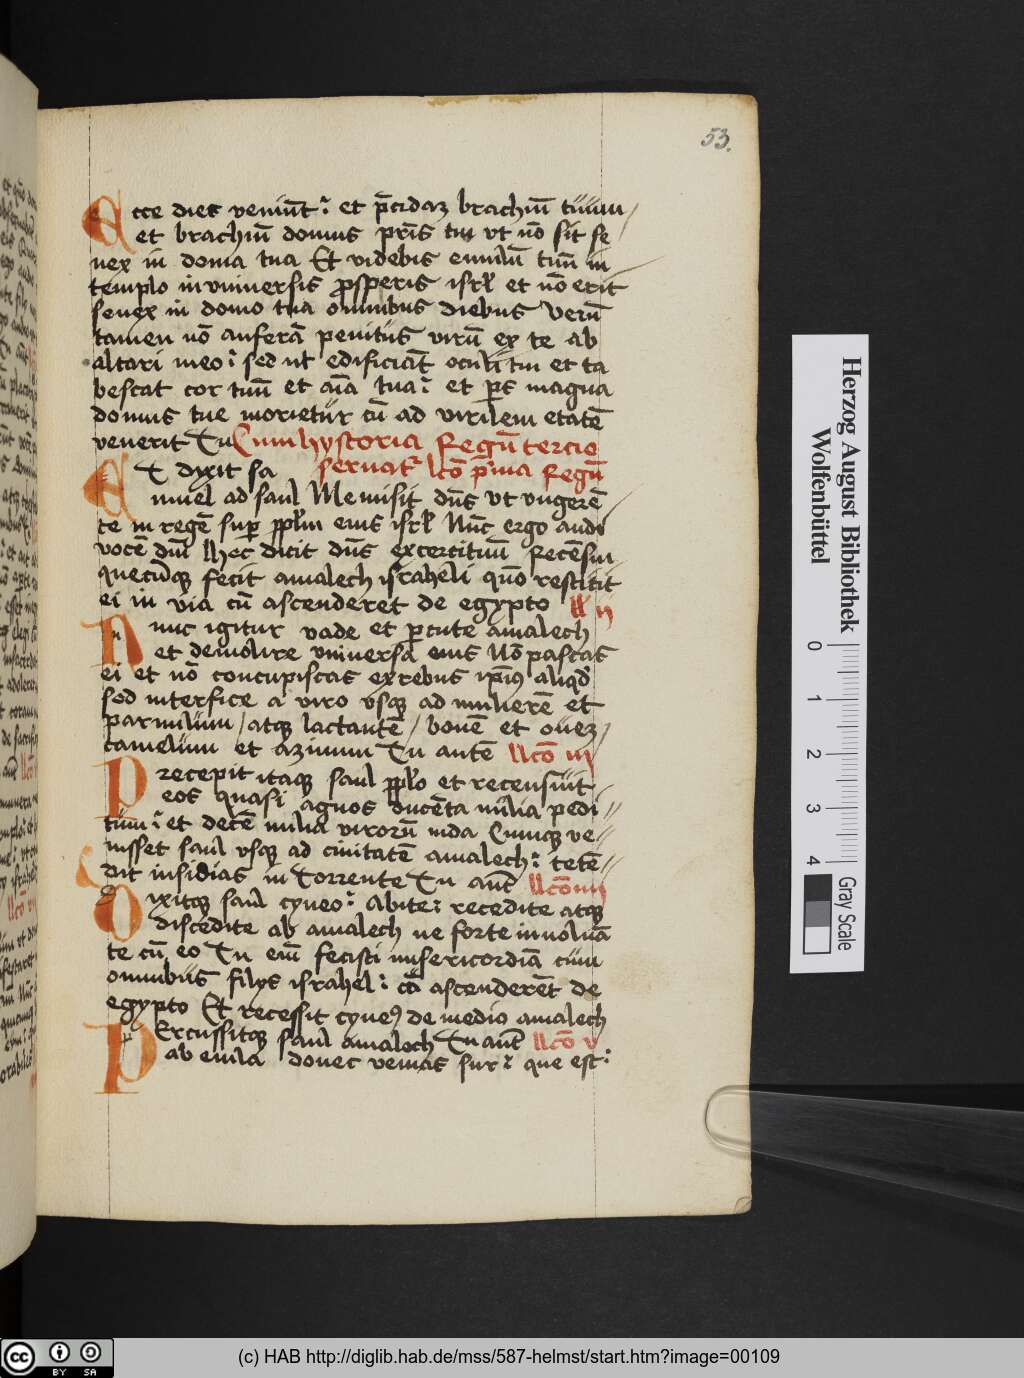 53.
Ecce dies veniūt: et p̄cidaꝫ brachiū tuum
et brachiū domus pr̄is tui vt nō sit se
nex in domo tua Et videbis emulū tuū in
templo in vniversis ꝓsperis isrl̄ et nō erit
senex in domo tua omnibus diebus Verū
tamen nō auferā penitus virū ex te ab
altari meo: sed ut deficiāt oculi tui et ta
bescat cor tuū et aīa tua: et ps magna
domus tue morietur cū ad virilem etatē
venerit Tu Cum hystoria Regū tercio
seruat' lc̄o p'ma Regū
Et dixit sa
muel ad saul Me misit dn̄s vt vngerē
te in regē sup ppl'm eius isrl̄ Nūc ergo audi
vocē dn̄i Hec dicit dn̄s excercituū Recēsui
quecūqꝫ fecit amalech israheli quō restitit
ei in via cū ascenderet de egypto ll ii
Nunc igitur vade et ꝑcute amalech
et demolire vniversa eius Nō parcas
ei et nō concupiscas ex rebus ip̄ius aliqd
sed interfice a viro vsqꝫ ad mulierē et
parvulum / atqꝫ lactantē / bovē et ouez
camelum et azinum Tu autē llc̄o iii
Precepit itaqꝫ saul ppl'o et recensuit
eos quasi agnos ducēta milia pedi
tum: et decē milia virorū iuda Cumqꝫ ve
nisset saul vsqꝫ ad civitatē amalech: tetē
dit insidias in Torrente Tu aūt llc̄o iiii
Dixitqꝫ saul cyneo: Abite: recedite atqꝫ
discedite ab amalech ne forte inuoluā
te cū eo Tu em̄ fecisti misericordiā cum
omnibus filijs israhel: cū ascenderēt de
egypto Et recessit cyneꝰ de medio amalech
Percussitqꝫ saul amalech Tu aūt llc̄o v
ab euila donec venias sur: que est:
Herzog August Bibliothek
Wolfenbüttel
0 1 2 3 4
Gray Scale
cc BY SA
(c) HAB http://diglib.hab.de/mss/587-helmst/start.htm?image=00109